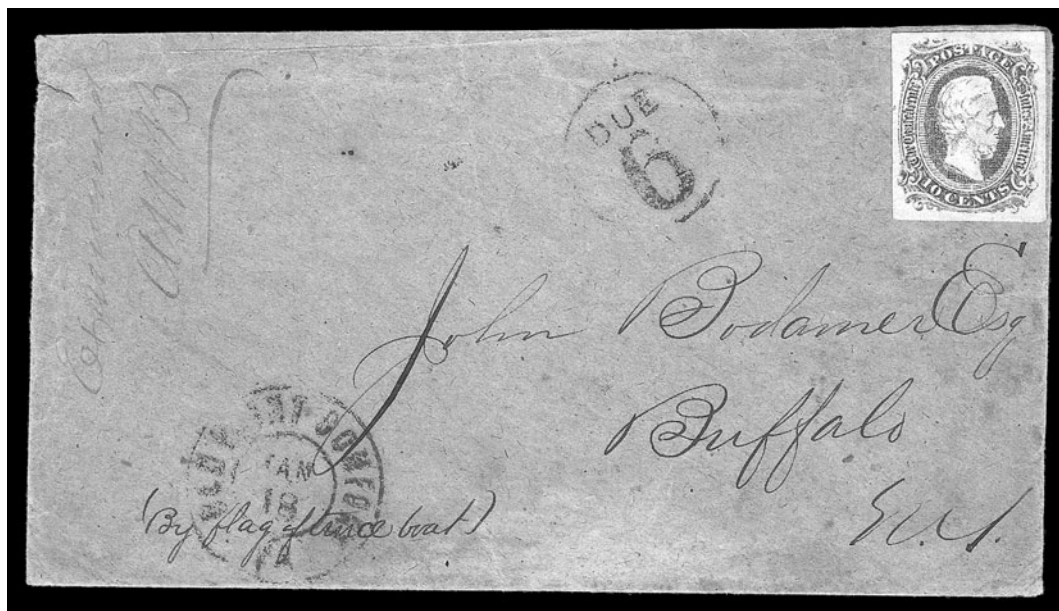 POSTAGE
The Confederate States America
10 CENTS
DUE
6
John Bodamer Esq
Buffalo
N.Y.
OLD POINT COMFORT
JAN
18
(By flag of truce boat)